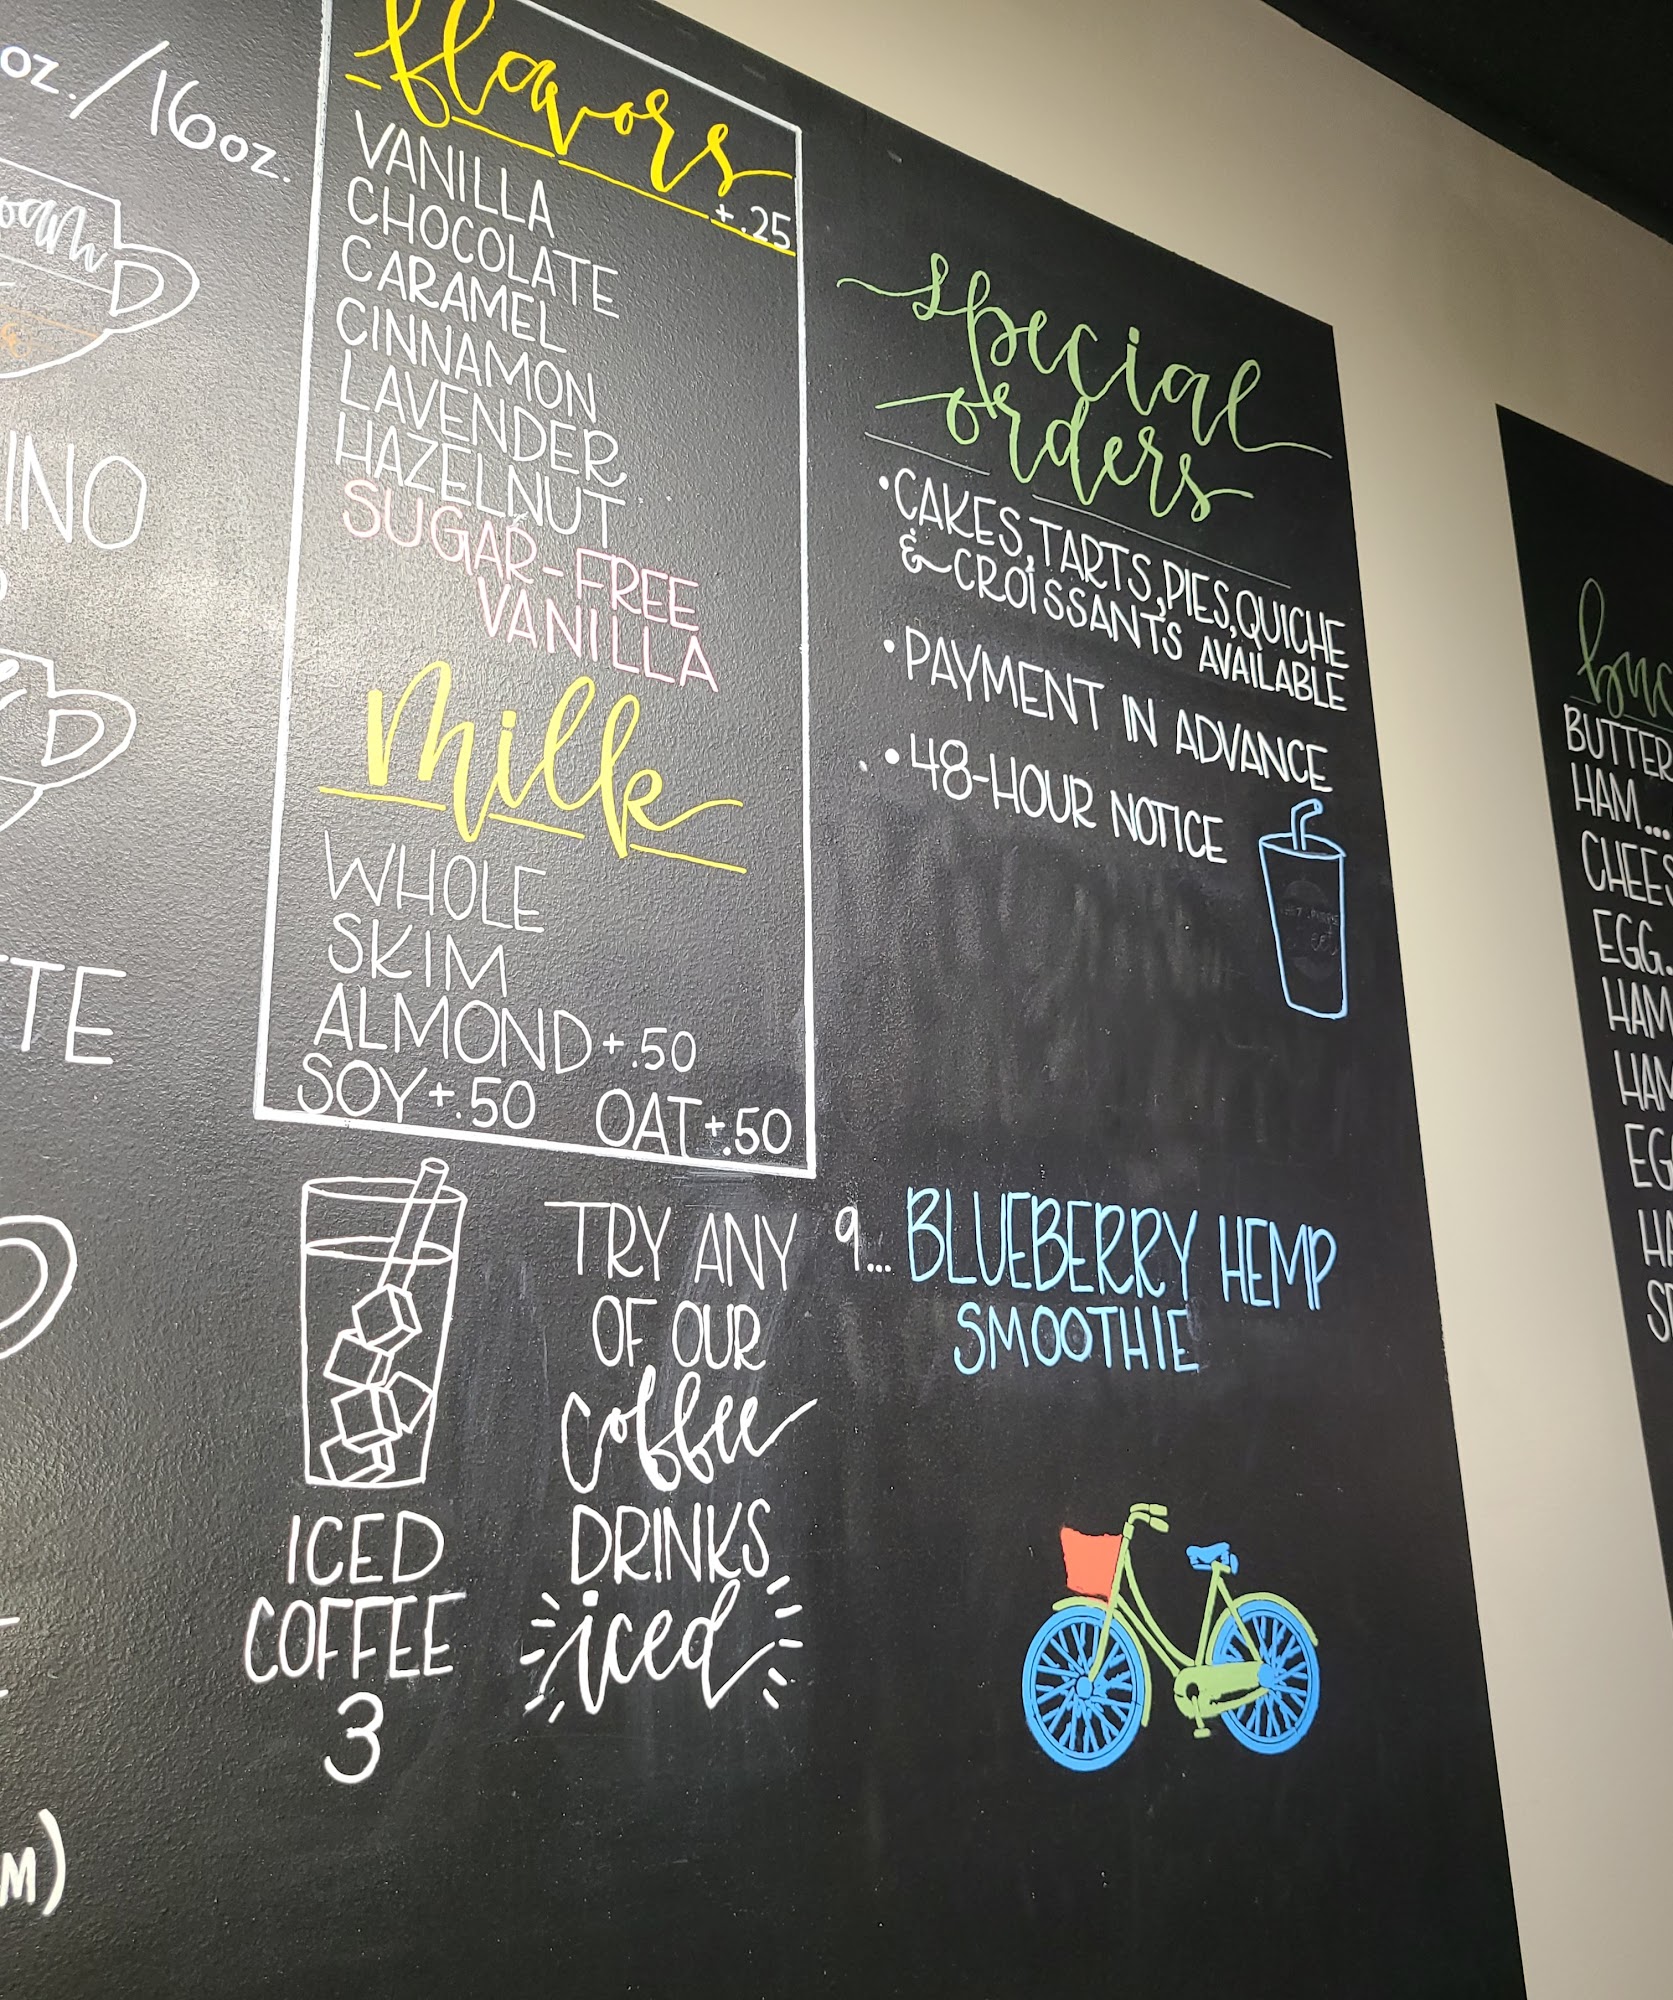 oz./16oz.
INO
TTE
M)
flavors
+.25
VANILLA
CHOCOLATE
CARAMEL
CINNAMON
LAVENDER
HAZELNUT
SUGAR-FREE
VANILLA
milk
WHOLE
SKIM
ALMOND +.50
SOY +.50 OAT +.50
ICED
COFFEE
3
TRY ANY
OF OUR
coffee
DRINKS
iced
special
orders
•CAKES, TARTS, PIES, QUICHE
& CROISSANTS AVAILABLE
•PAYMENT IN ADVANCE
•48-HOUR NOTICE
9... BLUEBERRY HEMP
SMOOTHIE
BUTTER
HAM...
CHEES
EGG.
HAM
HAM
EG
HA
ST